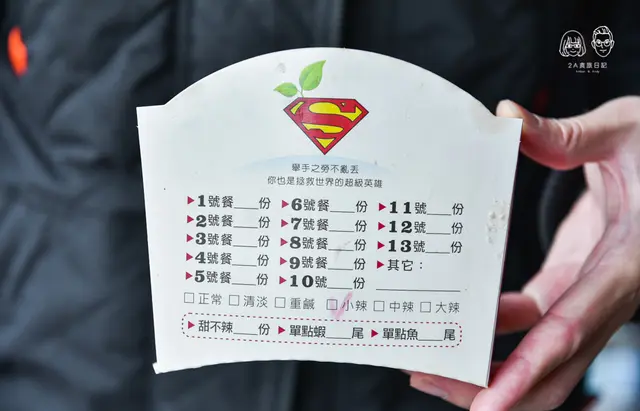 2A貪旅日記
舉手之勞不亂丟
你也是拯救世界的超級英雄
▶1號餐___份 ▶6號餐___份 ▶11號___份
▶2號餐___份 ▶7號餐___份 ▶12號___份
▶3號餐___份 ▶8號餐___份 ▶13號___份
▶4號餐___份 ▶9號餐___份 ▶其它：
▶5號餐___份 ▶10號___份 ________
□正常 □清淡 □重鹹 □小辣 □中辣 □大辣
▶甜不辣___份 ▶單點蝦___尾 ▶單點魚___尾